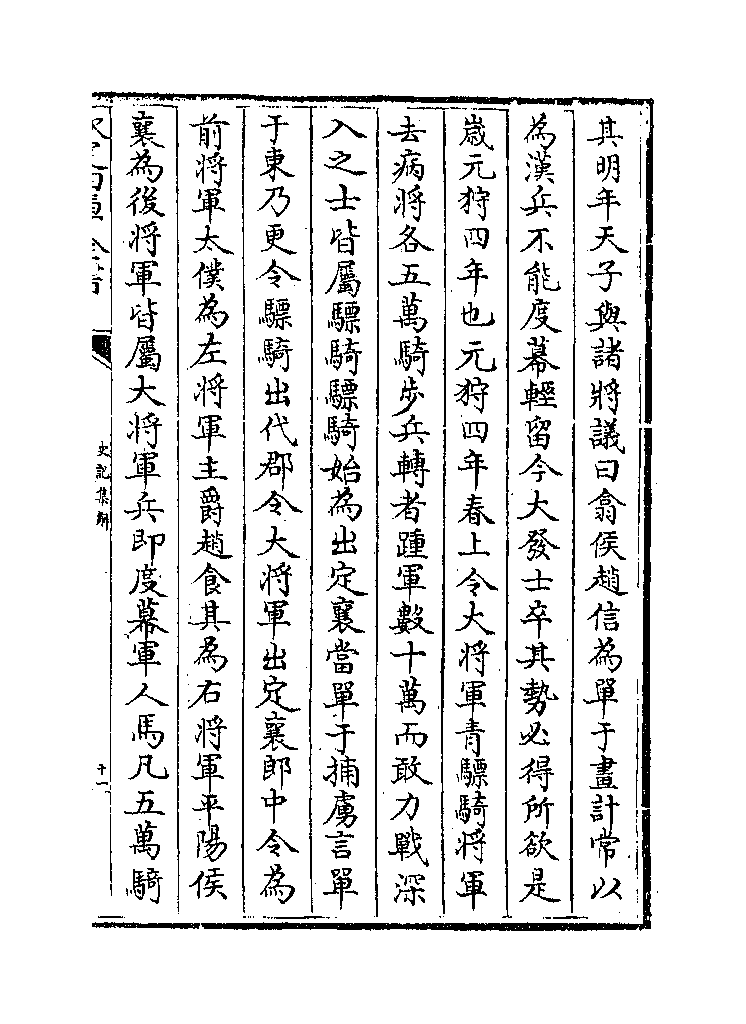 其明年天子與諸將議曰翕侯趙信為單于畫計常以
為漢兵不能度幕輕留今大發士卒其勢必得所欲是
歲元狩四年也元狩四年春上令大將軍青驃騎將軍
去病將各五萬騎步兵轉者踵軍數十萬而敢力戰深
入之士皆屬驃騎驃騎始為出定襄當單于捕虜言單
于東乃更令驃騎出代郡令大將軍出定襄郎中令為
前將軍太僕為左將軍主爵趙食其為右將軍平陽侯
襄為後將軍皆屬大將軍兵即度幕軍人馬凡五萬騎
史記集解
十一